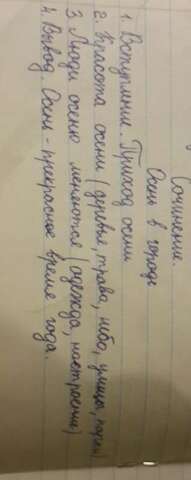 Сочинение.
Осень в городе
1. Вступление. Приход осени
2. Красота осени (деревья, трава, небо, улицы, парки)
3. Люди осенью меняются (одежда, настроение)
4. Вывод. Осень - прекрасное время года.